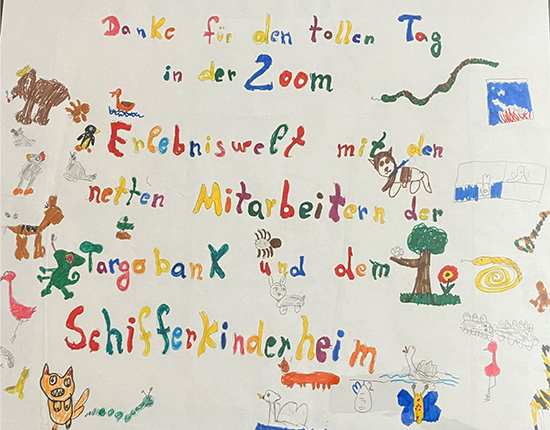 Danke für den tollen Tag
in der Zoom
Erlebniswelt mit den
netten Mitarbeitern der
Targobank und dem
Schifferkinderheim